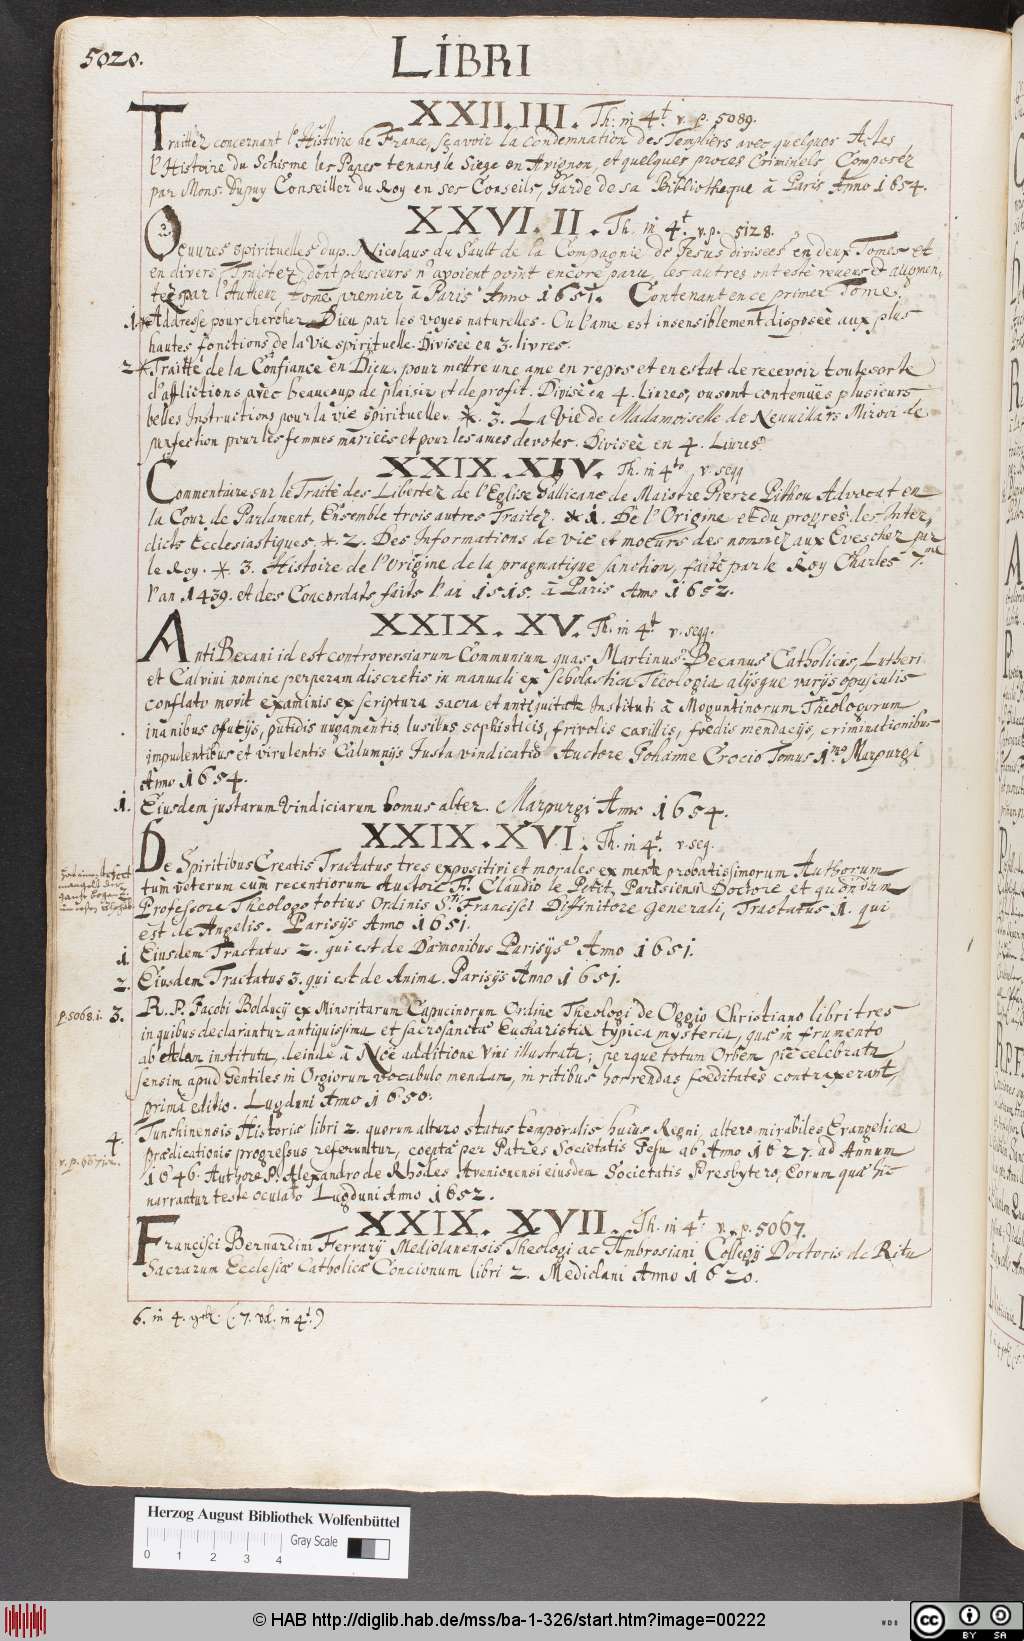 5020.
LIBRI
XXII. III. Th: in 4t. v. p. 5089.
Traittéz concernant l'Histoire de France, sçavoir la condemnation des Templiers avec quelques Actes
l'Histoire du Schisme les Papes tenans le Siege en Avignon, et quelques proces Criminels Composéz
par Mons. Dupuy Conseiller du Roy en ses Conseils, Garde de sa Bibliotheque à Paris Anno 1654.
XXVI. II. Th. in 4t. v. p. 5128.
Oeuures spirituelles du p. Nicolaus du Sault de la Compagnie de Jesus divisées en deux Tomes et
en divers Traictez dont plusieurs n'avoient point encore paru, les autres ont esté reueus & augmen-
téz par l'Autheur tome premier à Paris Anno 1651. Contenant en ce primer Tome.
1. * Addresse pour chercher Dieu par les voyes naturelles. Ou l'ame est insensiblement disposée aux plus
hautes fonctions de la Vie spirituelle. Divisée en 3. livres.
2 * Traitté de la Confiance en Dieu, pour mettre une ame en repos et en estat de recevoir toute sorte
d'afflictions avec beaucoup de plaisir et de profit. Divisé en 4. Liures, ou sont contenües plusieurs
belles Instructions pour la vie spirituelle. * . 3. La Vie de Madamoiselle de Neuuilars Miroir de
perfection pour les femmes mariées et pour les ames devotes. Divisée en 4. Liures.
XXIX. XIV. Th. in 4to. v. seqq
Commentaire sur le Traité des Libertez de l'Eglise Gallicane de Maistre Pierre Pithou Advocat en
la Cour de Parlament, Ensemble trois autres Traitez. * 1. De l'Origine et du progres les Inter,
dicts Ecclesiastiques. * . 2. Des Informations de vie et moeurs des nommez aux Eveschez par
le Roy. * 3. Histoire de l'Origine de la pragmatique sanction, faite par le Roy Charles 7.me
l'an 1439. et des Concordats faits l'an 1515. à Paris Anno 1652.
XXIX. XV. Th. in 4t. v. seqq.
AntiBecani id est controversiarum Communium quas Martinus Becanus Catholicis, Lutheri
et Calvini nomine perperam discretis in manuali ex scholastica Theologia alijsque varijs opusculis
conflato movit examinis ex scriptura sacra et antiquitate Instituti à Moguntinorum Theologorum
inanibus offucijs, putidis nugamentis, lusibus sophisticis, frivolis cavillis, foedis mendacijs, criminationibus
impudentibus et virulentis Calumnijs Justa vindicatio Auctore Johanne Crocio Tomus 1mo Marpurgi
Anno 1654.
1. Eiusdem justarum Vindiciarum tomus alter. Marpurgi Anno 1654.
XXIX. XVI. Th. in 4t. v. seq.
De Spiritibus Creatis Tractatus tres expositivi et morales ex mente probatissimorum Authorum
tum veterum cum recentiorum Auctore Fr. Claudio le Petit, Parisiensi Doctore et quondam
Professore Theologo totius Ordinis S.ti Francisci Diffinitore Generali, Tractatus 1. qui
est de Angelis. Parisijs Anno 1651.
1. Eiusdem Tractatus 2. qui est de Dæmonibus Parisijs Anno 1651.
2. Eiusdem Tractatus 3. qui est de Anima. Parisijs Anno 1651.
p. 5068. i. 3. R. P. Jacobi Bolducij ex Minoritarum Capucinorum Ordine Theologi de Oggio Christiano libri tres
in quibus declarantur antiquissima et sacrosanctæ Eucharistiæ typica mysteria, quæ in frumento
ab Adam instituta, deinde à Noë additione Vini illustrata; perque totum Orbem pie celebrata
sensim apud Gentiles in Orgiorum vocabulo mendam, in ritibus horrendas foeditates contraxerant,
prima editio. Lugduni Anno 1650.
4. Tunchinensis Historiæ libri 2. quorum altero status temporalis huius Regni, altero mirabiles Evangelicæ
prædicationis progressus referuntur, coeptæ per Patres Societatis Jesu ab Anno 1627. ad Annum
1646. Authore P. Alexandro de Rhodes Avenionensi eiusdem Societatis Presbytero, Eorum quæ hic
narrantur teste oculato Lugduni Anno 1652.
XXIX. XVII. Th. in 4t. v. p. 5067.
Francisci Bernardini Ferrarij Mediolanensis Theologi ac Ambrosiani Collegij Doctoris de Ritu
Sacrarum Ecclesiæ Catholicæ Concionum libri 2. Mediolani Anno 1620.
Herzog August Bibliothek Wolfenbüttel
Gray Scale
0 1 2 3 4
© HAB http://diglib.hab.de/mss/ba-1-326/start.htm?image=00222
WDB
cc BY SA